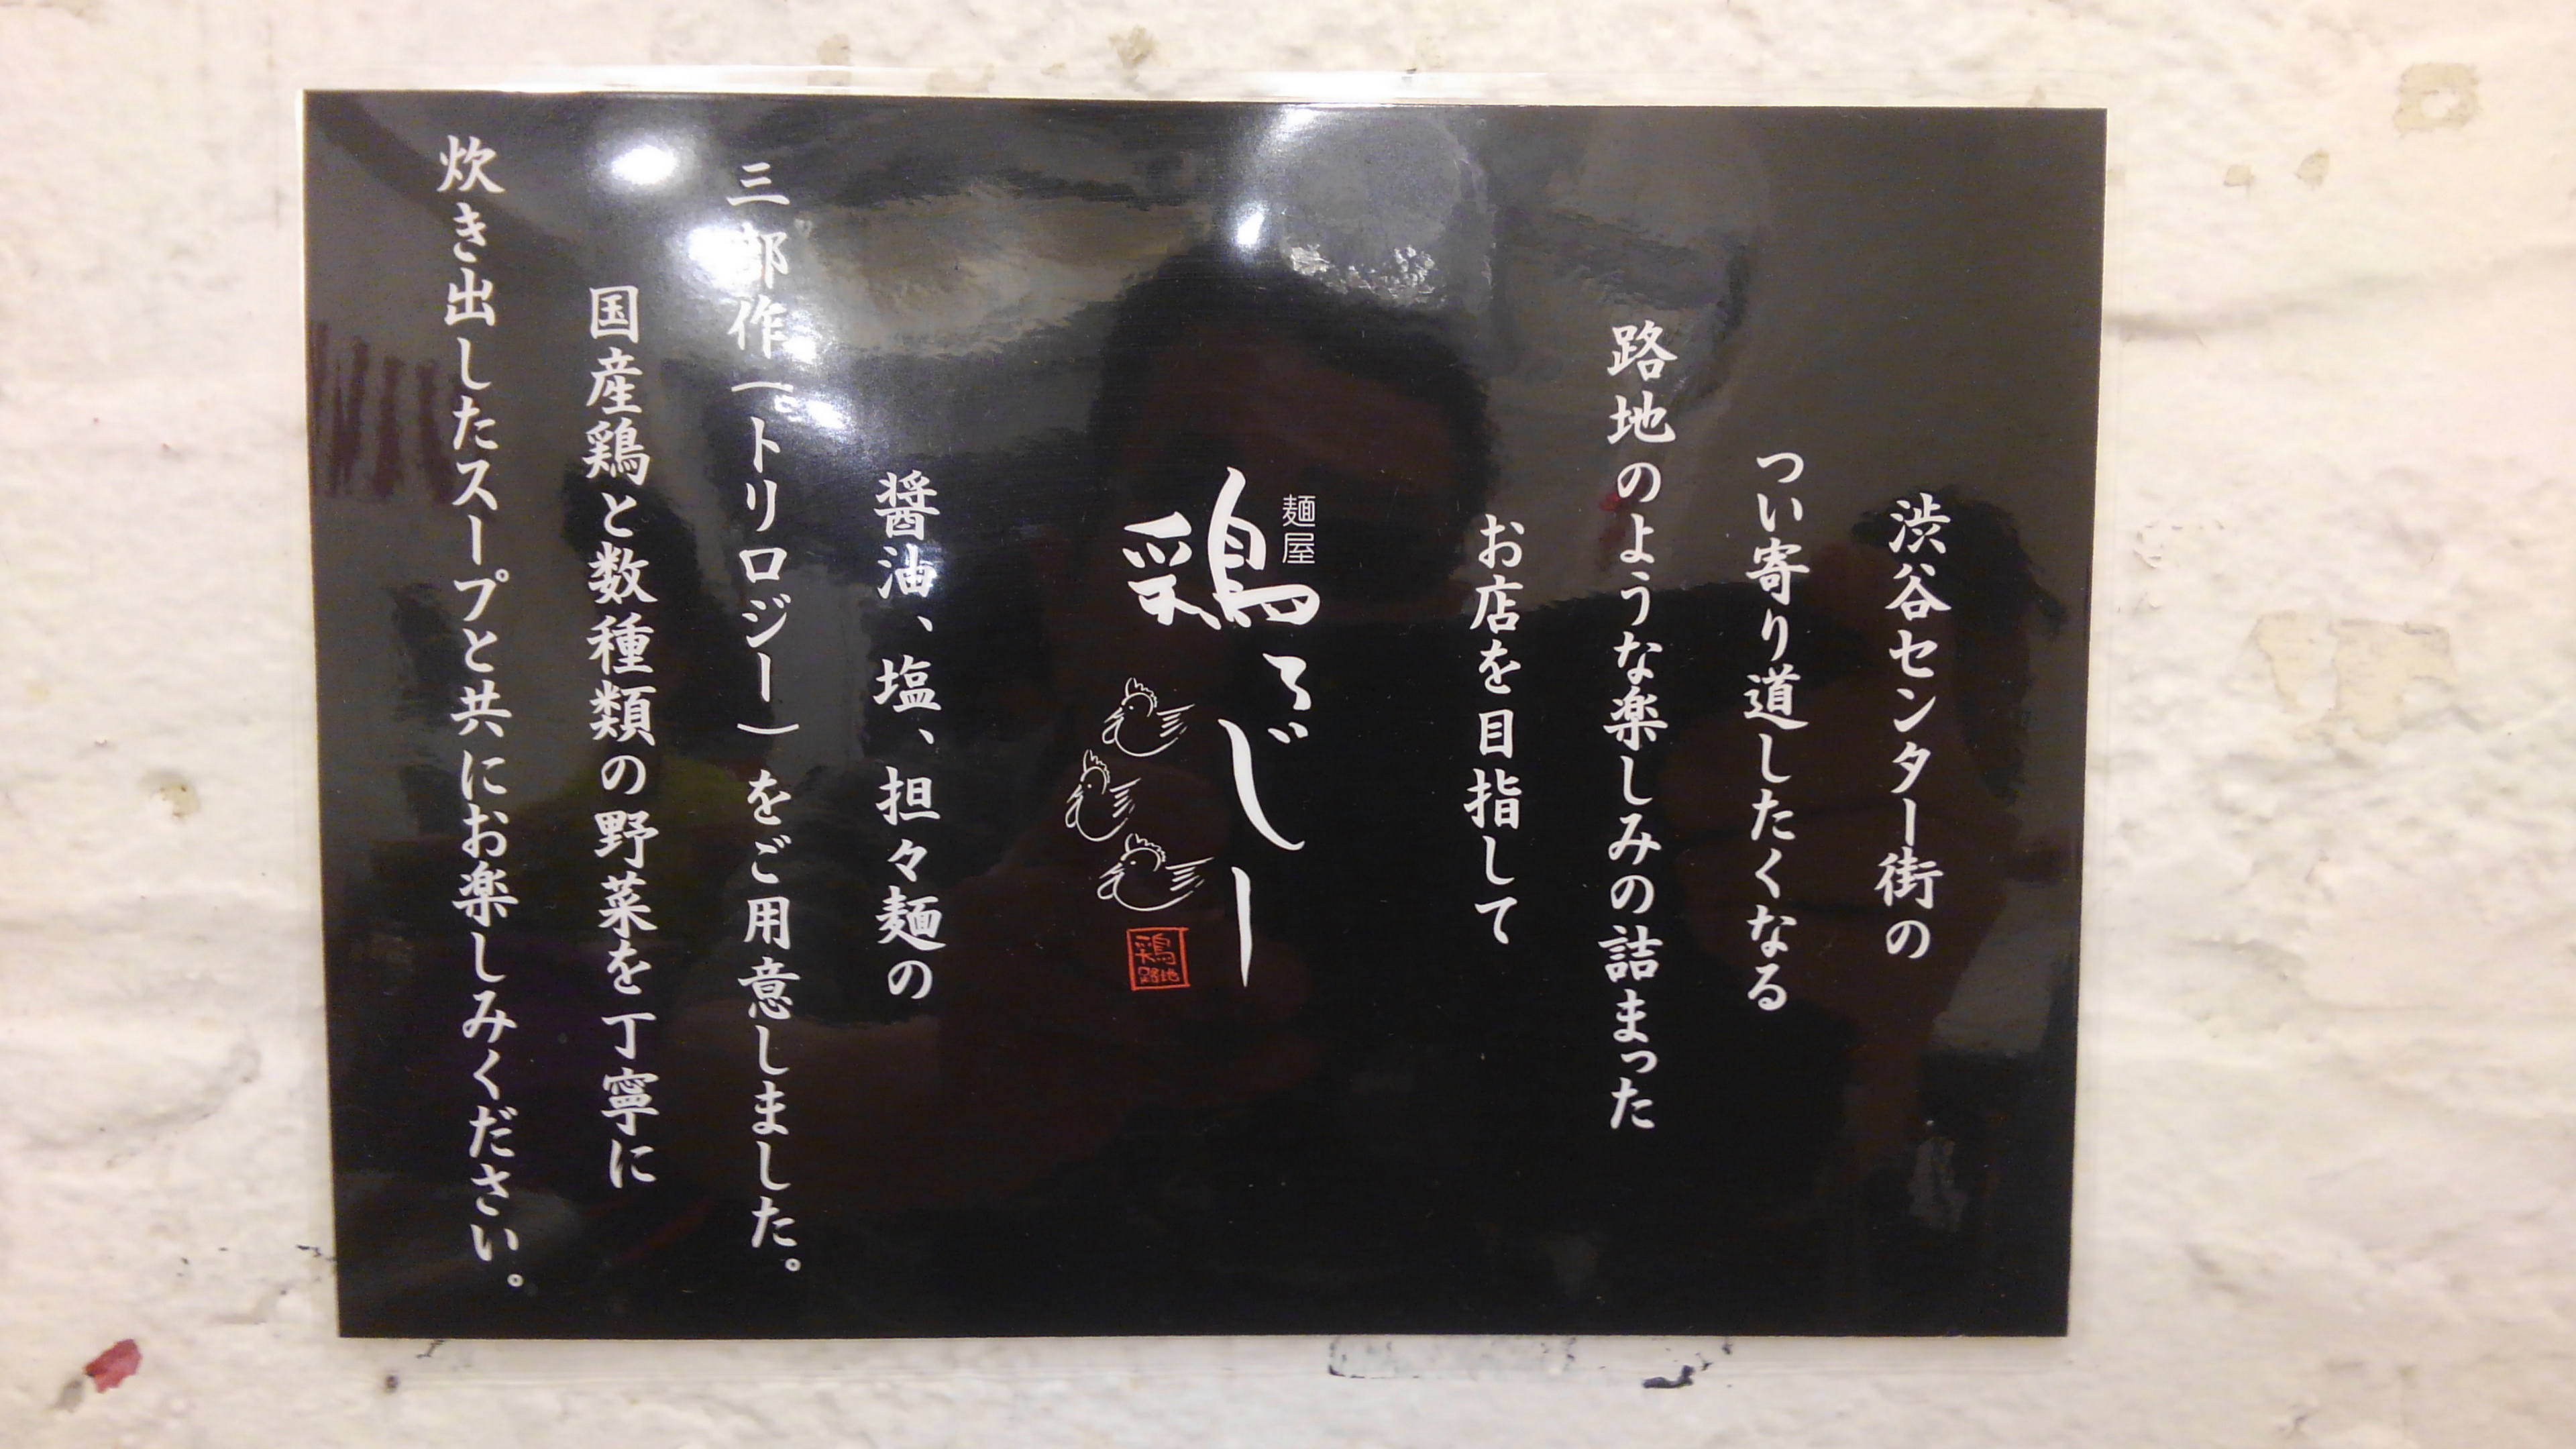 渋谷センター街の
つい寄り道したくなる
路地のような楽しみの詰まった
お店を目指して
麺屋
鶏ろじー
鶏
路地
醤油、塩、担々麺の
三部作(トリロジー)をご用意しました。
国産鶏と数種類の野菜を丁寧に
炊き出したスープと共にお楽しみください。